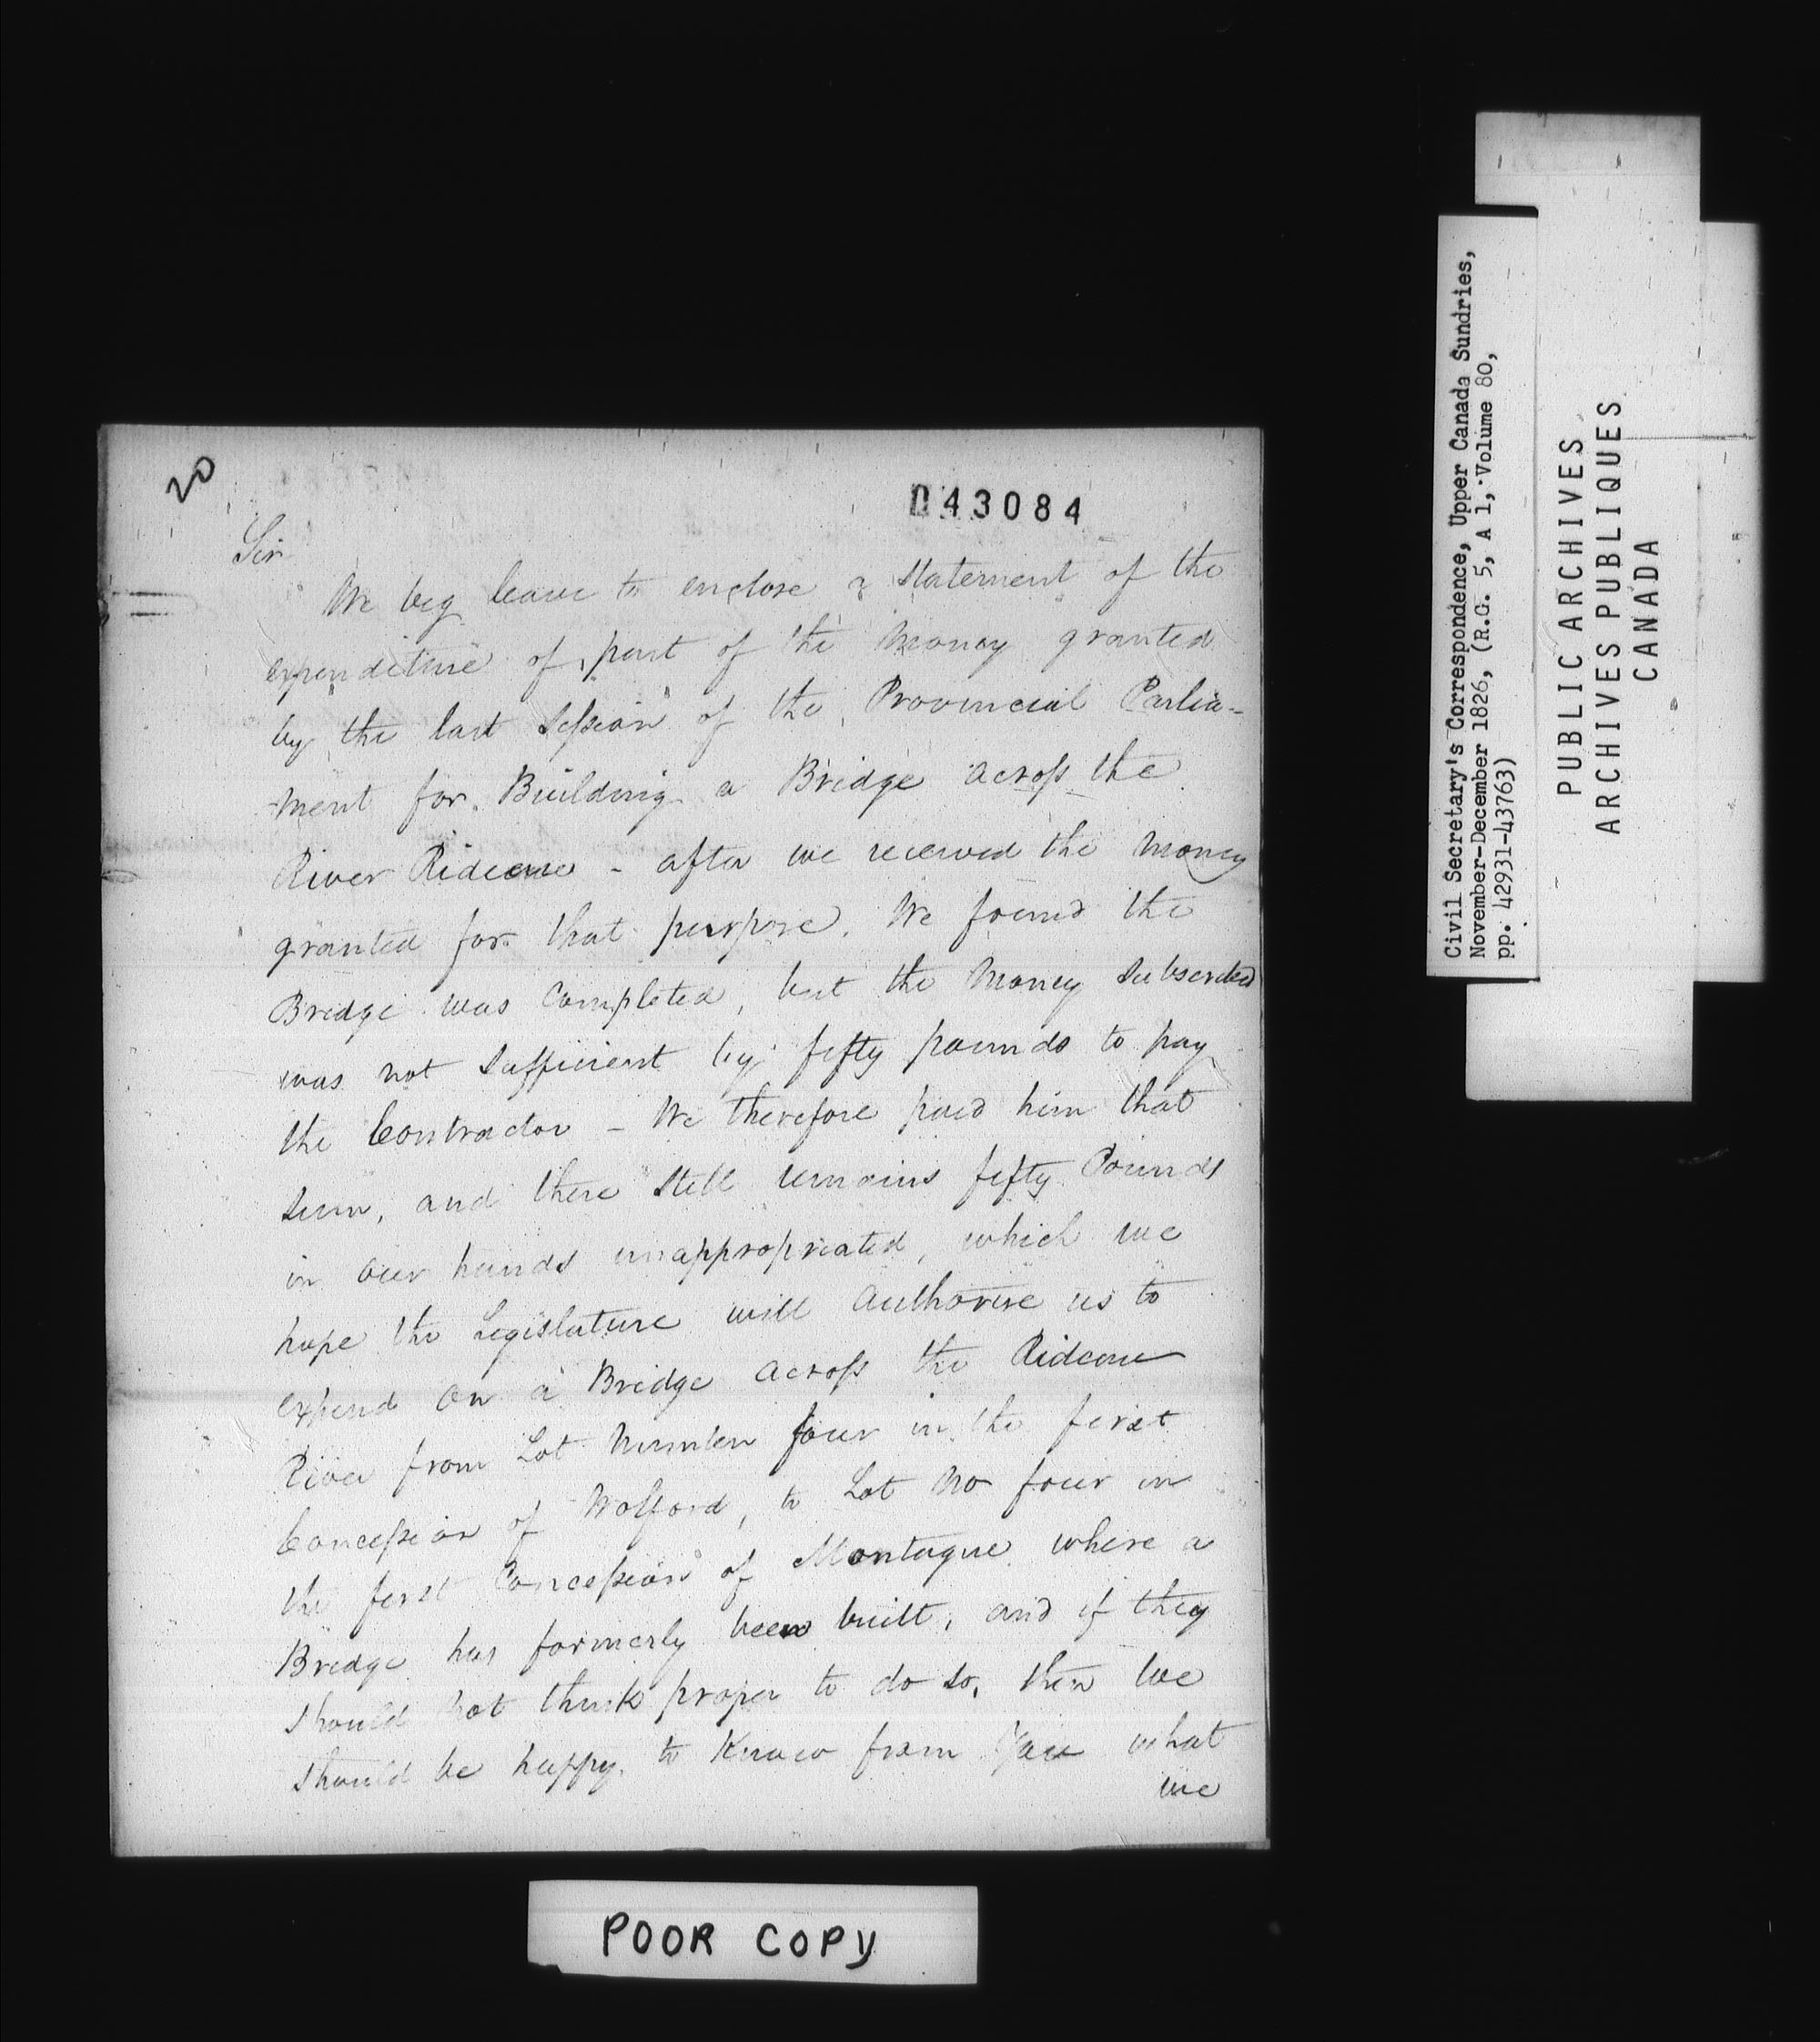 20
043084
Sir
We beg leave to enclose a statement of the
expenditure of part of the Money granted
by the last Session of the Provincial Parlia-
-ment for Building a Bridge across the
River Rideau - after we received the Money
granted for that purpose. We found the
Bridge was Completed, but the Money Subscribed
was not Sufficient by fifty pounds to pay
the Contractor - We therefore paid him that
Sum, and there Still remains fifty Pounds
in our hands unappropriated, which we
hope the Legislature will Authorise us to
expend on a Bridge across the Rideau
River from Lot Number four in the first
Concession of Wolford, to Lot No four in
the first Concession of Montague where a
Bridge has formerly been built, and if they
Should not think proper to do so, then we
Should be happy to Know from You what
we
POOR COPY
Civil Secretary's Correspondence, Upper Canada Sundries,
November-December 1826, (R.G. 5, A 1, Volume 80,
pp. 42931-43763)
PUBLIC ARCHIVES
ARCHIVES PUBLIQUES
CANADA